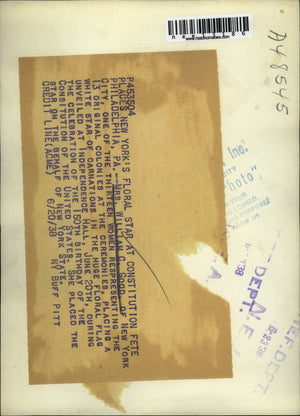 P453504
PLACES NEW YORK'S FLORAL STAR AT CONSTITUTION FETE
PHILADELPHIA, PA.--MRS. WILLIAM G. WOOD, OF NEW YORK
CITY, ONE OF THE THIRTEEN WOMEN RESPRESENTING THE
13 ORIGINAL COLONIES AT THE CEREMONIES, PLACING A
WHITE STAR OF CARNATIONS IN THE HUGE FLORAL FLAG
UNVEILED AT INDEPENDENCE HALL, JUNE 20TH, DURING
THE CELEBRATION OF THE 150TH BIRTHDAY OF THE
CONSTITUTION OF THE UNITED STATES. SHE PLACED THE
STAR ON THE BEHALF OF NEW YORK STATE.
CREDIT LINE (ACME) 6/20/38 NY BUFF PITT
A48545
Inc.
CITY
Photo"
YOUR
LOANED
FROM US
DEPT.
REF. DEPT.
6-23-38
N. E. A.